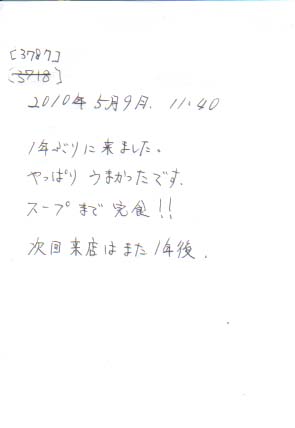 [3787]
[3718]
2010年5月9月. 11:40
1年ぶりに来ました。
やっぱり うまかったです.
スープまで完食!!
次回来店はまた1年後.